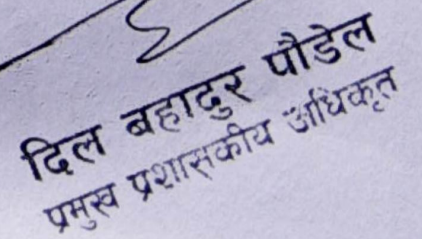 दिल बहादुर पौडेल
प्रमुख प्रशासकीय अधिकृत